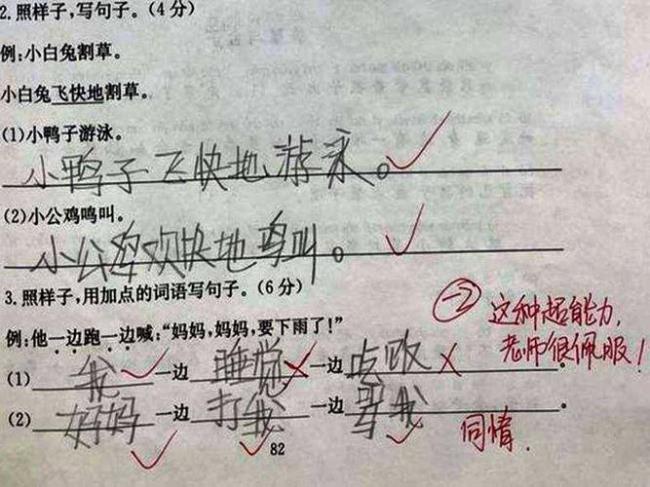 2.照样子,写句子。(4分)
例:小白兔割草。
小白兔飞快地割草。
(1)小鸭子游泳。
小鸭子飞快地游泳。
(2)小公鸡鸣叫。
小公鸡欢快地鸣叫。
3.照样子,用加点的词语写句子。(6分)
-2 这种超能力,
老师很佩服!
例:他一边跑一边喊:“妈妈,妈妈,要下雨了!”
(1)我一边睡觉一边走路。
(2)妈妈一边打我一边骂我。
同情.
82